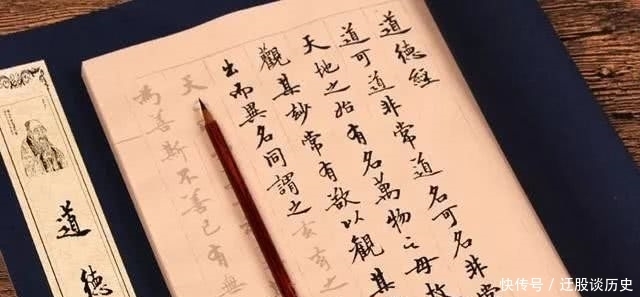 道德經
道可道非常道名可名非常
天地之始有名萬物之母故
觀其妙常有欲以觀其
出而異名同謂之玄玄之
天
為善斯不善已有無
道德
快传号 / 迁股谈历史